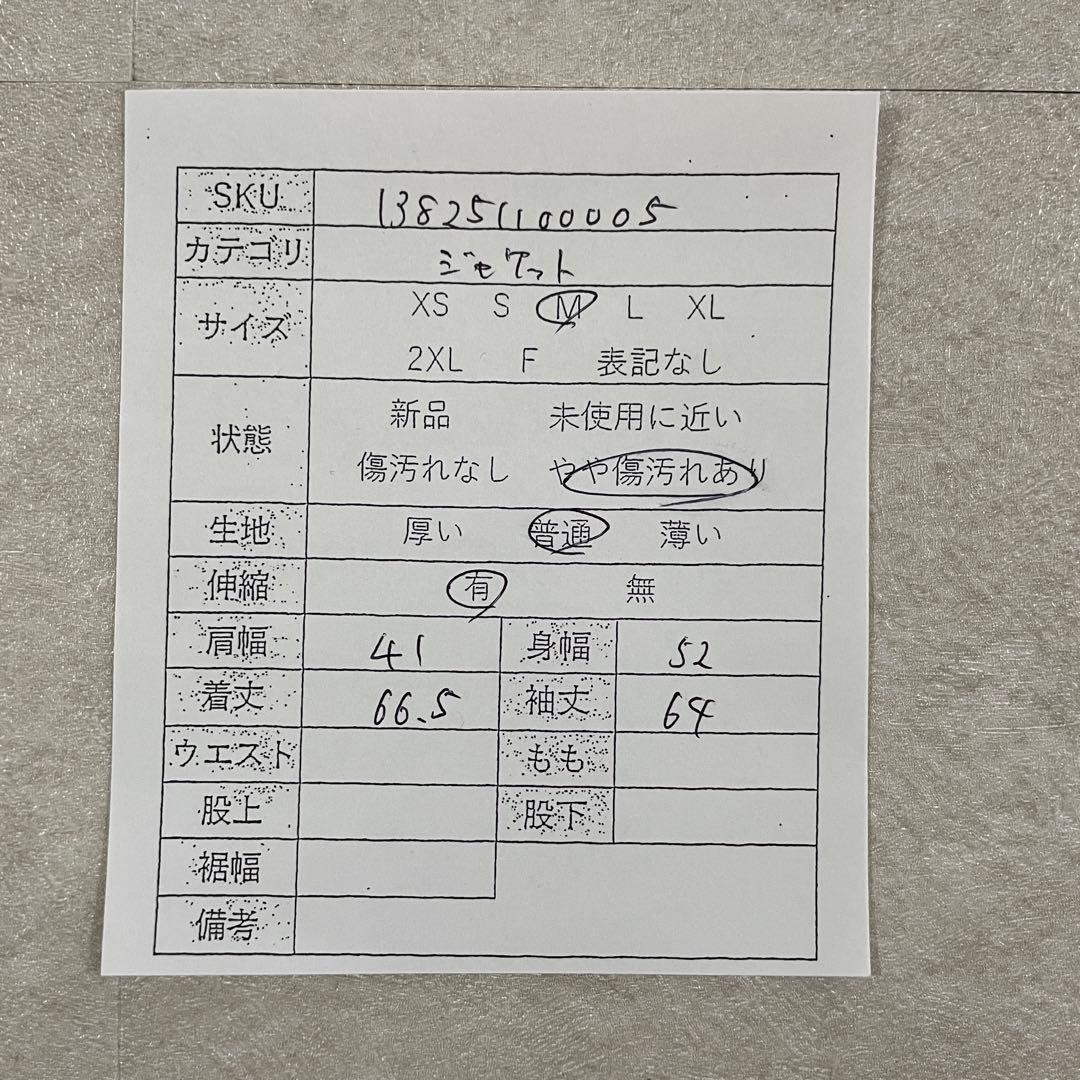 SKU 138251100005
カテゴリ ジャケット
サイズ XS S M L XL
2XL F 表記なし
状態 新品 未使用に近い
傷汚れなし やや傷汚れあり
生地 厚い 普通 薄い
伸縮 有 無
肩幅 41 身幅 52
着丈 66.5 袖丈 64
ウエスト もも
股上 股下
裾幅
備考